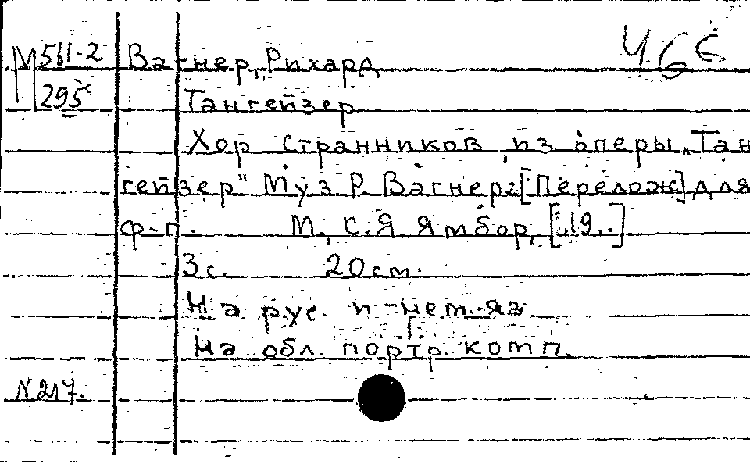 М 511-2 Вагнер, Рихард
295 Тангейзер
Хор странников из оперы „Тан
гейзер" Муз Р. Вагнера [Перелож] для
ф-п. М., С.Я Ямбор, [19..]
3 с. 20 см.
На рус. и нем. яз
На обл. портр. комп.
N 217.